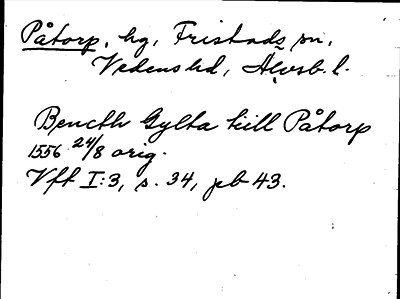 Påtorp, hg, Fristads sn,
Vedens hd, Älvsb. l.
Bencth Gylta till Påtorp
1556 24/8 orig.
Vft I:3, s. 34, pb 43.